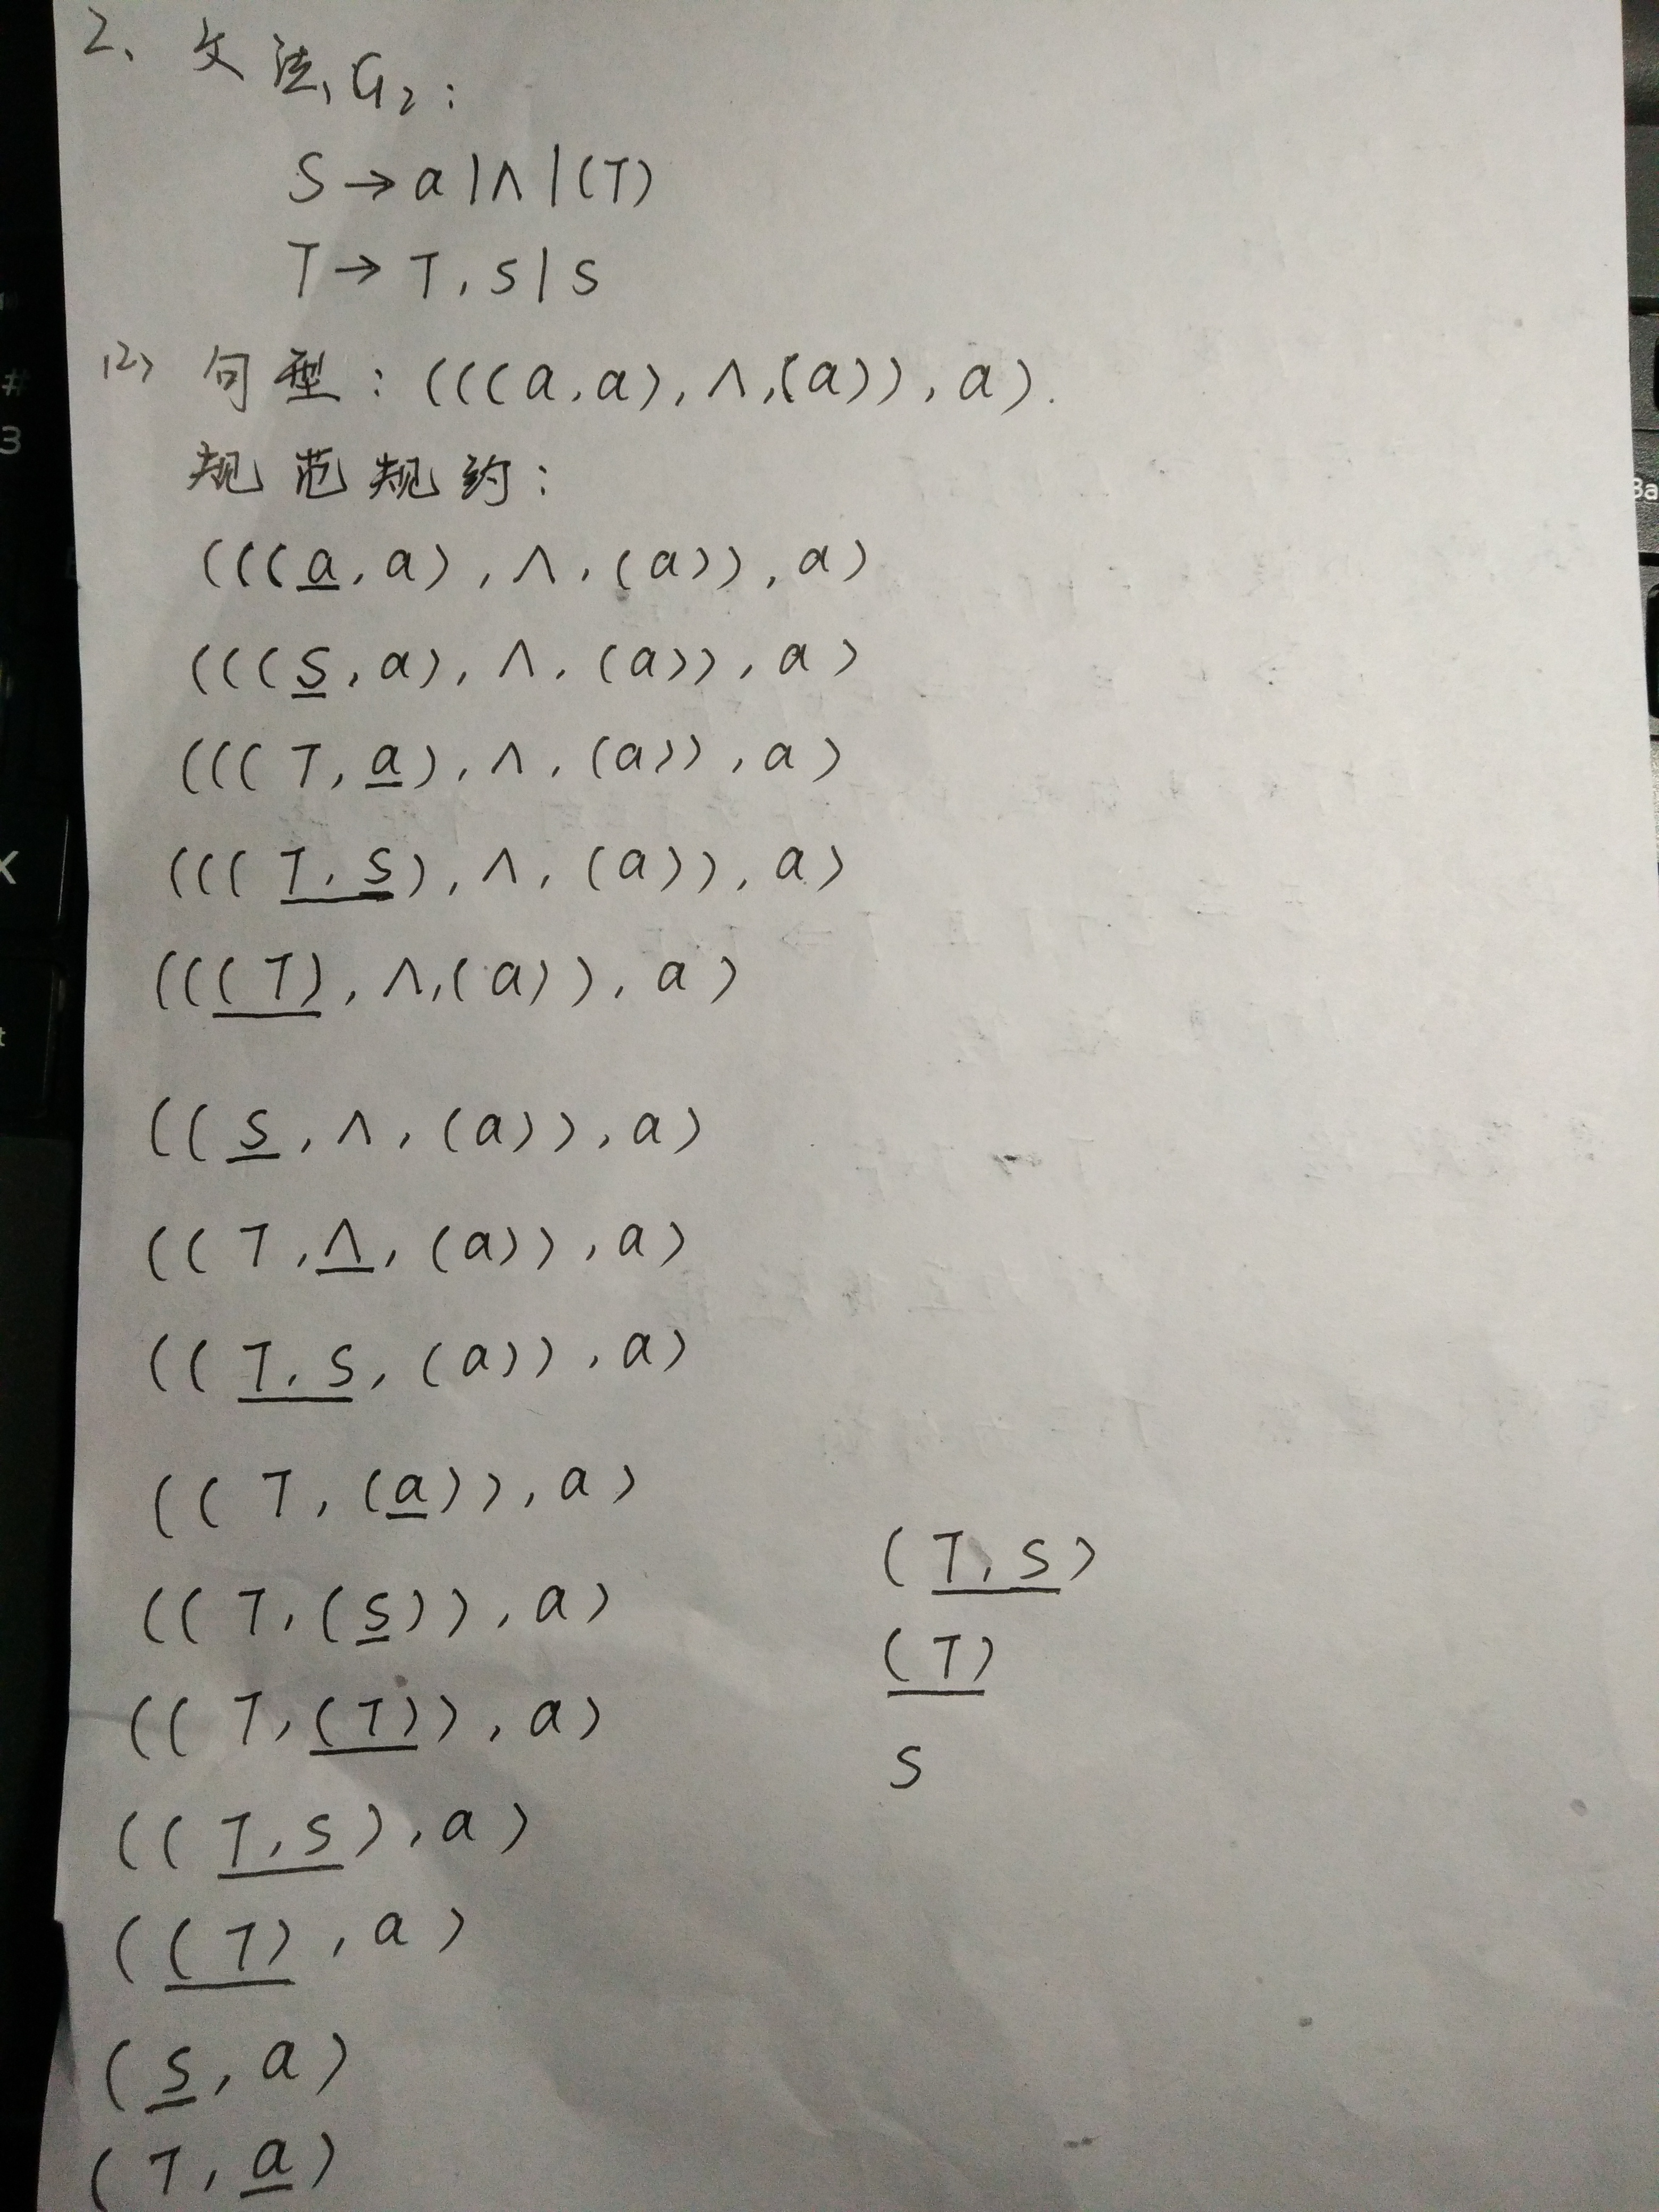 2、文法G₂：
S→a|∧|(T)
T→T,S|S
(2) 句型：(((a,a),∧,(a)),a).
规范规约：
(((a,a),∧,(a)),a)
(((S,a),∧,(a)),a)
(((T,a),∧,(a)),a)
(((T,S),∧,(a)),a)
(((T),∧,(a)),a)
((S,∧,(a)),a)
((T,∧,(a)),a)
((T,S,(a)),a)
((T,(a)),a)
((T,(S)),a)
((T,(T)),a)
((T,S),a)
((T),a)
(S,a)
(T,a)
(T,S)
(T)
S
#
3
X
Ba